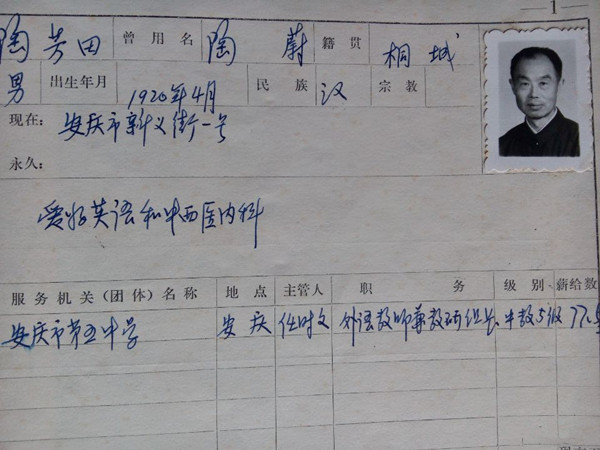 — 1 —
陶芳田 曾用名 陶蔚 籍贯 桐城
男 出生年月 1920年4月 民族 汉 宗教
现在: 安庆市新义街一号
永久:
爱好英语和中西医内科
服务机关(团体)名称 地点 主管人 职务 级别 薪给数
安庆市第五中学 安庆 任时文 外语教师兼教研组长 中教5级 77.5